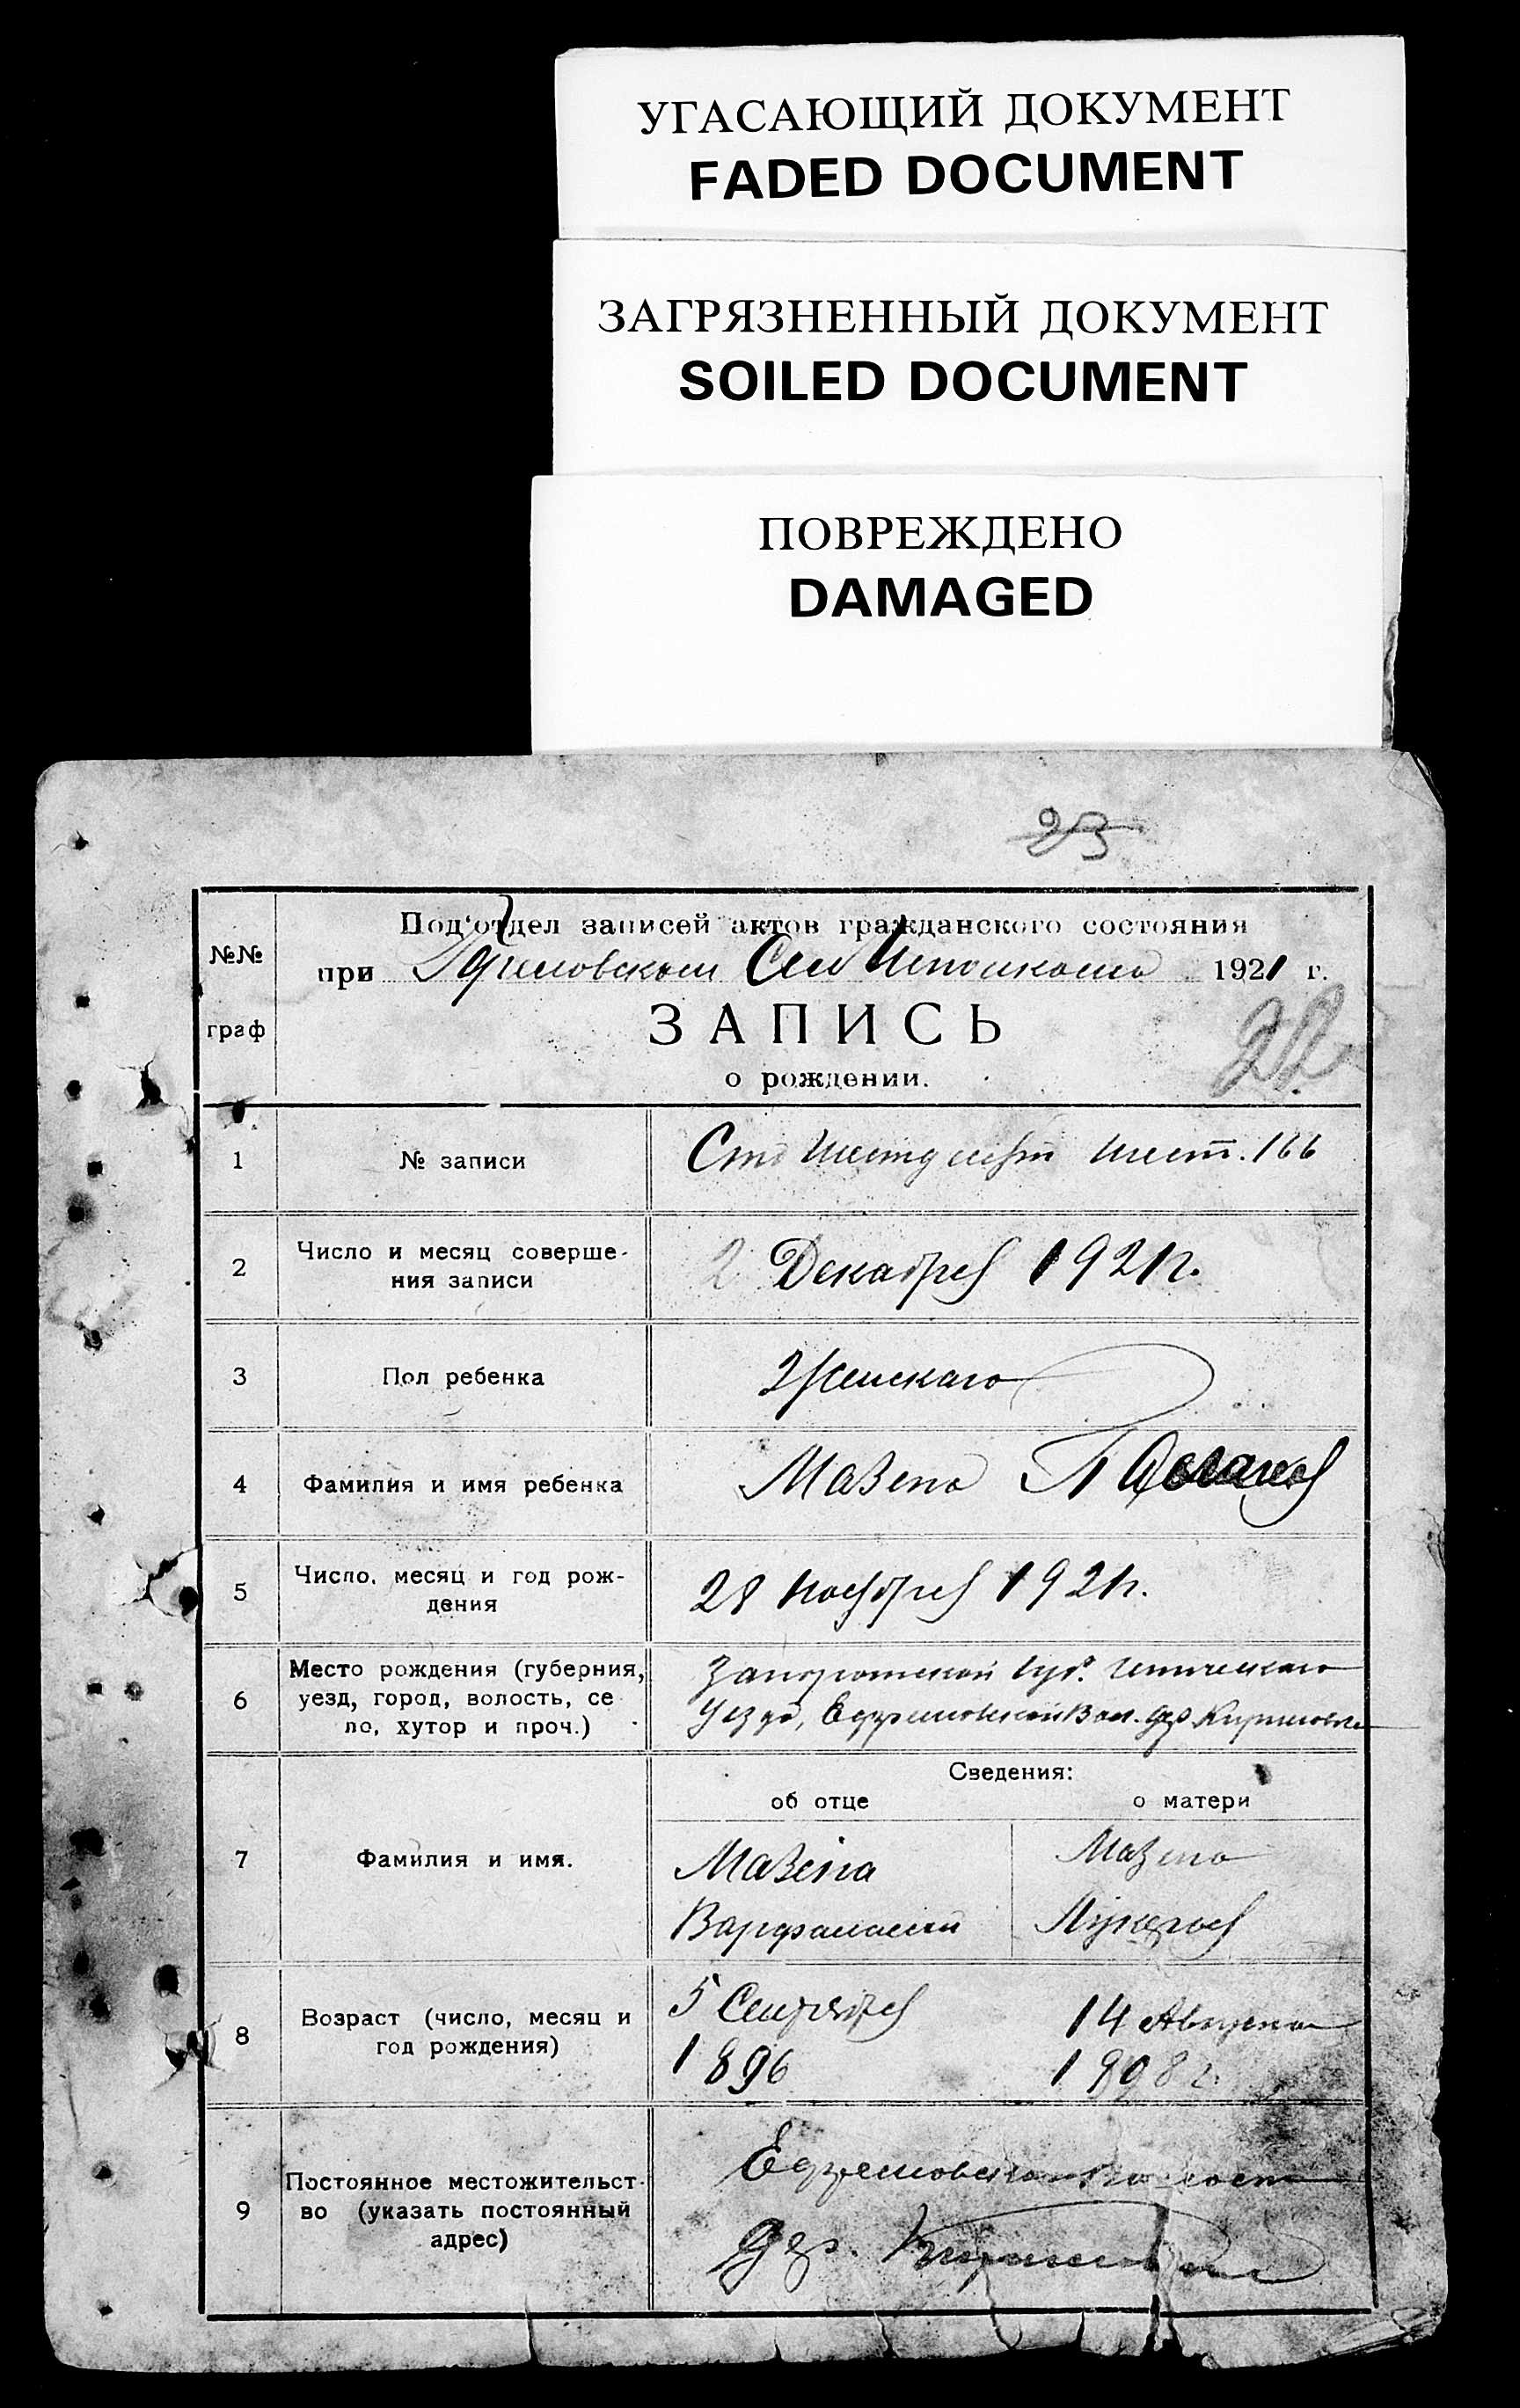 УГАСАЮЩИЙ ДОКУМЕНТ
FADED DOCUMENT
ЗАГРЯЗНЕННЫЙ ДОКУМЕНТ
SOILED DOCUMENT
ПОВРЕЖДЕНО
DAMAGED
23
№№
граф
Под'отдел записей актов гражданского состояния
при 1921 г.
ЗАПИСЬ
о рождении.
1
№ записи
Сто шестдесят шест. 166
2
Число и месяц соверше-
ния записи
2 Декабря 1921 г.
3
Пол ребенка
Женскаго
4
Фамилия и имя ребенка
Мазепа
5
Число, месяц и год рож-
дения
28 Ноября 1921 г.
6
Место рождения (губерния,
уезд, город, волость, се
ло, хутор и проч.)
Запорожской Губ.
Уезда, Ефремовской Вол. дер. Кириловка
Сведения:
об отце
о матери
7
Фамилия и имя.
Мазепа
Варфаламей
Мазепа
Лукерья
8
Возраст (число, месяц и
год рождения)
5 Сентября
1896
14 Августа
1898 г.
9
Постоянное местожительст-
во (указать постоянный
адрес)
Ефремовская
дер.